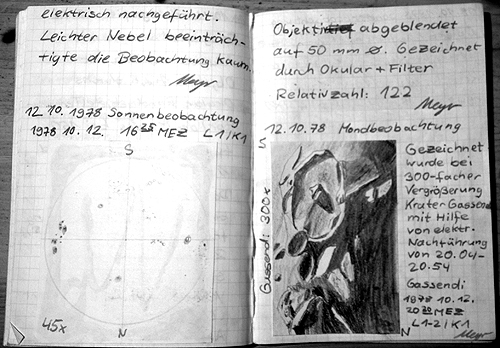 elektrisch nachgeführt.
Leichter Nebel beeinträch-
tigte die Beobachtung kaum.
Meyr
12 10. 1978 Sonnenbeobachtung
1978 10. 12. 16 28 MEZ L1/K1
S
45x
N
Objektiv abgeblendet
auf 50 mm ø. Gezeichnet
durch Okular + Filter
Relativzahl: 122
Meyr
12.10.78 Mondbeobachtung
S
Gassendi 300x
N
Gezeichnet
wurde bei
300-facher
Vergrößerung
Krater Gassendi
mit Hilfe
von elektr.
Nachführung
von 20.04-
20.54
Gassendi
1978 10.12.
20 30 MEZ
L1-2/K1
Meyr